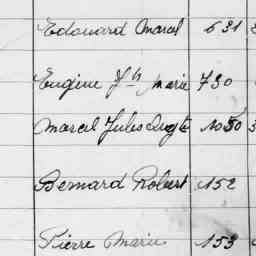 Edouard Marcel 631
Eugène Jh Marie 730
Marcel Jules Augte 1050
Bernard Robert 152
Pierre Marie 153